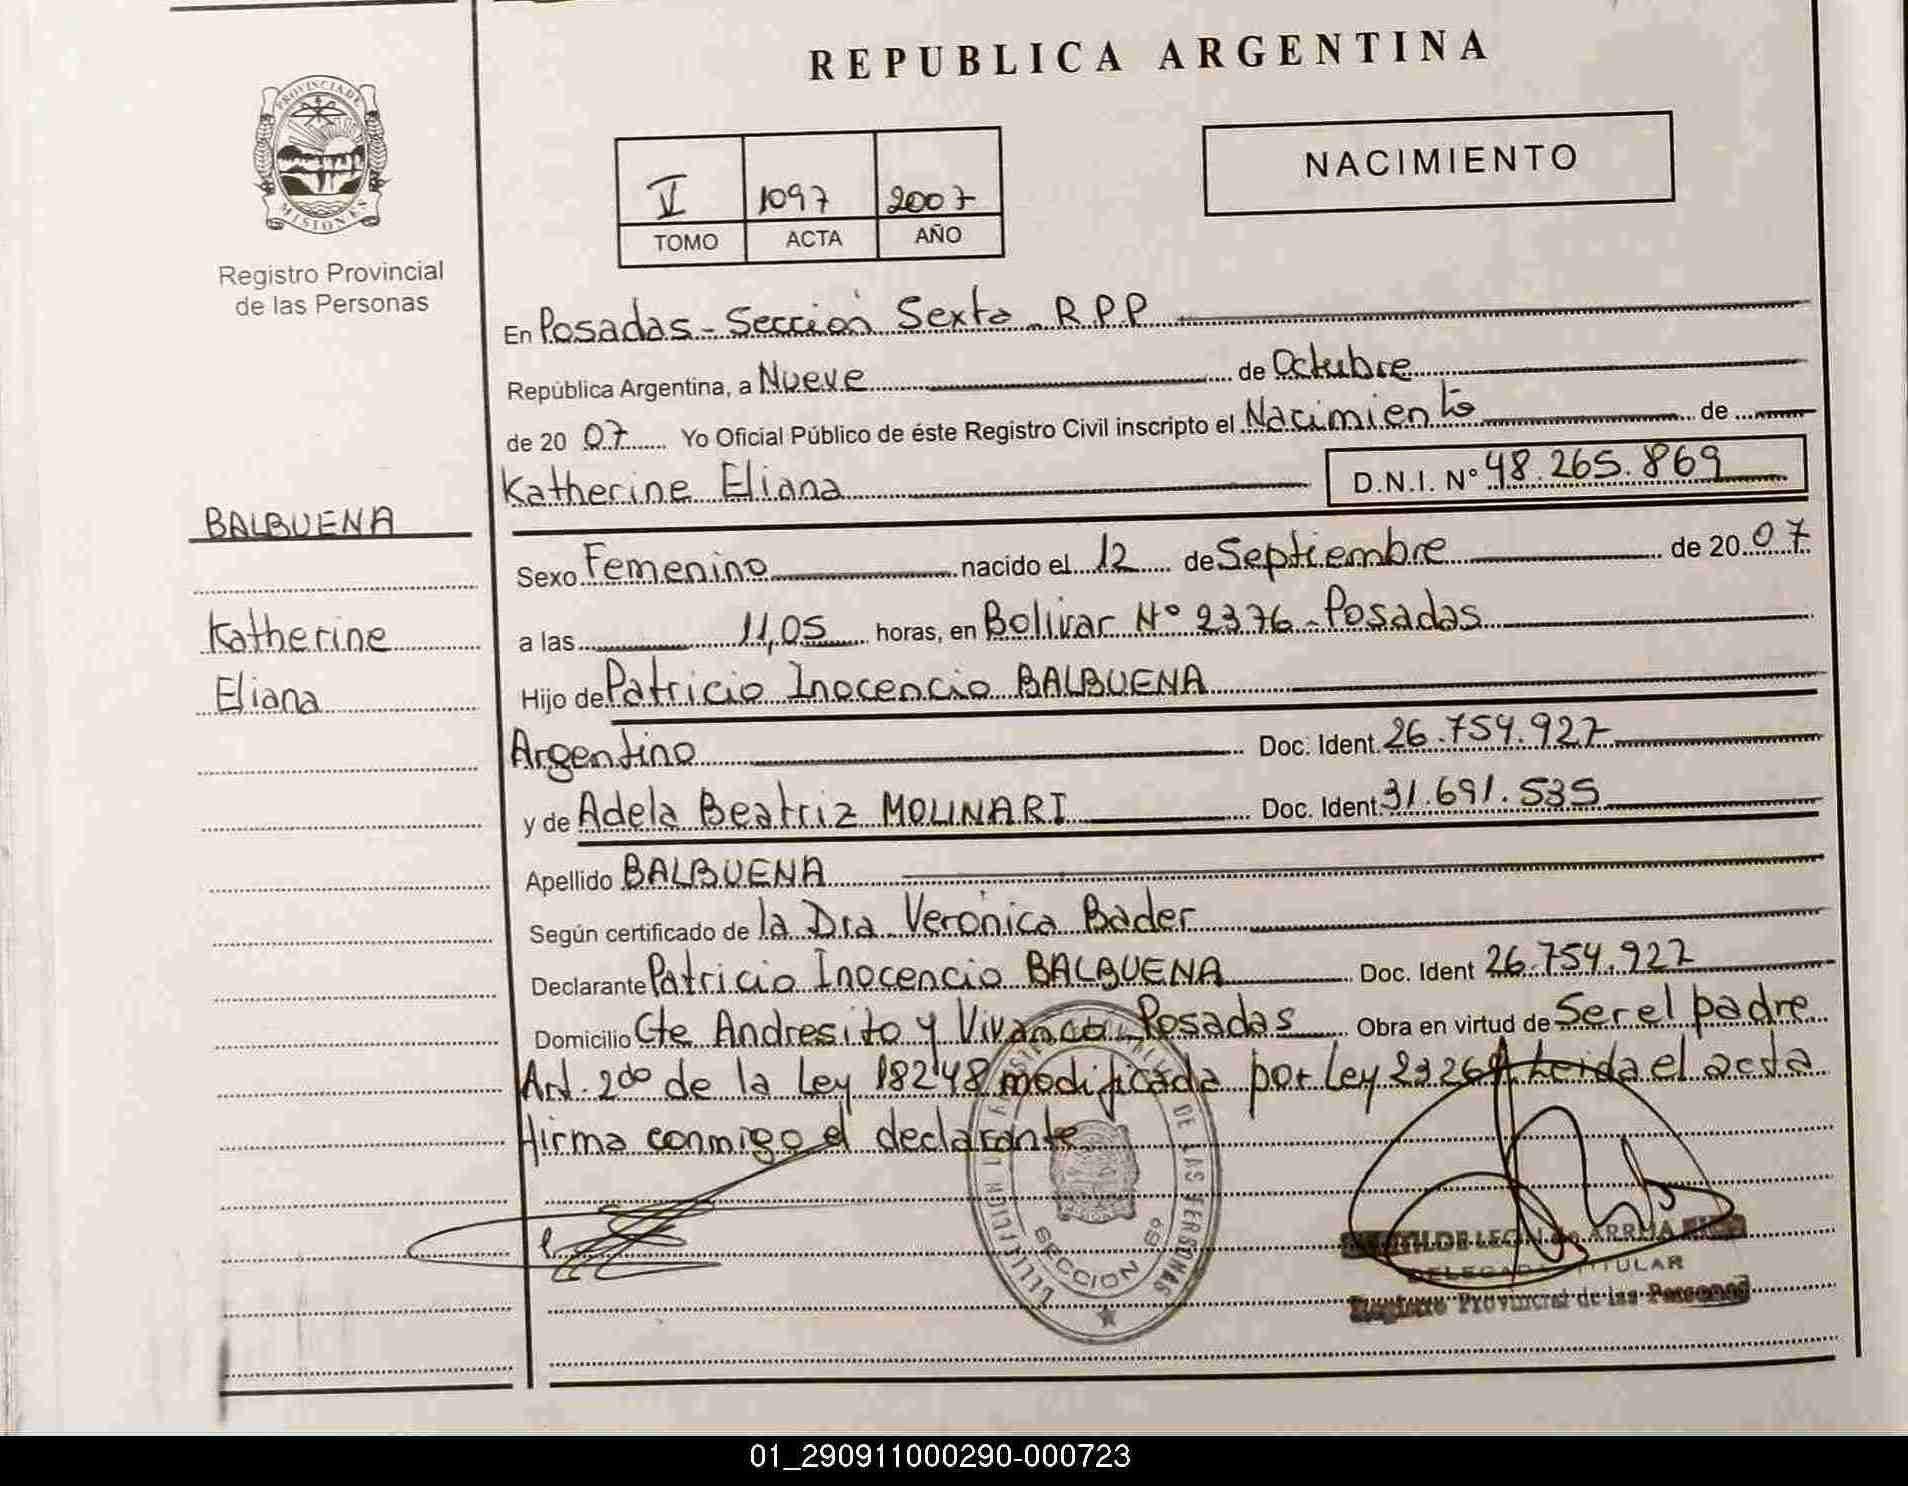 REPUBLICA ARGENTINA
PROVINCIA DE
MISIONES
Registro Provincial
de las Personas
V 1097 2007
TOMO ACTA AÑO
NACIMIENTO
En Posadas - Sección Sexta R.P.P
República Argentina, a Nueve de Octubre
de 20 07 Yo Oficial Público de éste Registro Civil inscripto el Nacimiento de
Katherine Eliana D.N.I. Nº 48.265.869
BALBUENA
Katherine
Eliana
Sexo Femenino nacido el 12 de Septiembre de 20 07
a las 11,05 horas, en Bolivar Nº 2376 - Posadas
Hijo de Patricio Inocencio BALBUENA
Argentino Doc. Ident. 26.754.927
y de Adela Beatriz MOLINARI Doc. Ident. 31.691.535
Apellido BALBUENA
Según certificado de la Dra Verónica Bader
Declarante Patricio Inocencio BALBUENA Doc. Ident 26.754.927
Domicilio Cte Andresito y Vivanco - Posadas Obra en virtud de Ser el padre
Art. 2do de la Ley 18248 modificada por Ley 23264 Leida el acta
firma conmigo el declarante
DE LAS PERSONAS
SECCION 6º
DE LEON de ARRUA
DELEGADA TITULAR
Registro Provincial de las Personas
01_290911000290-000723